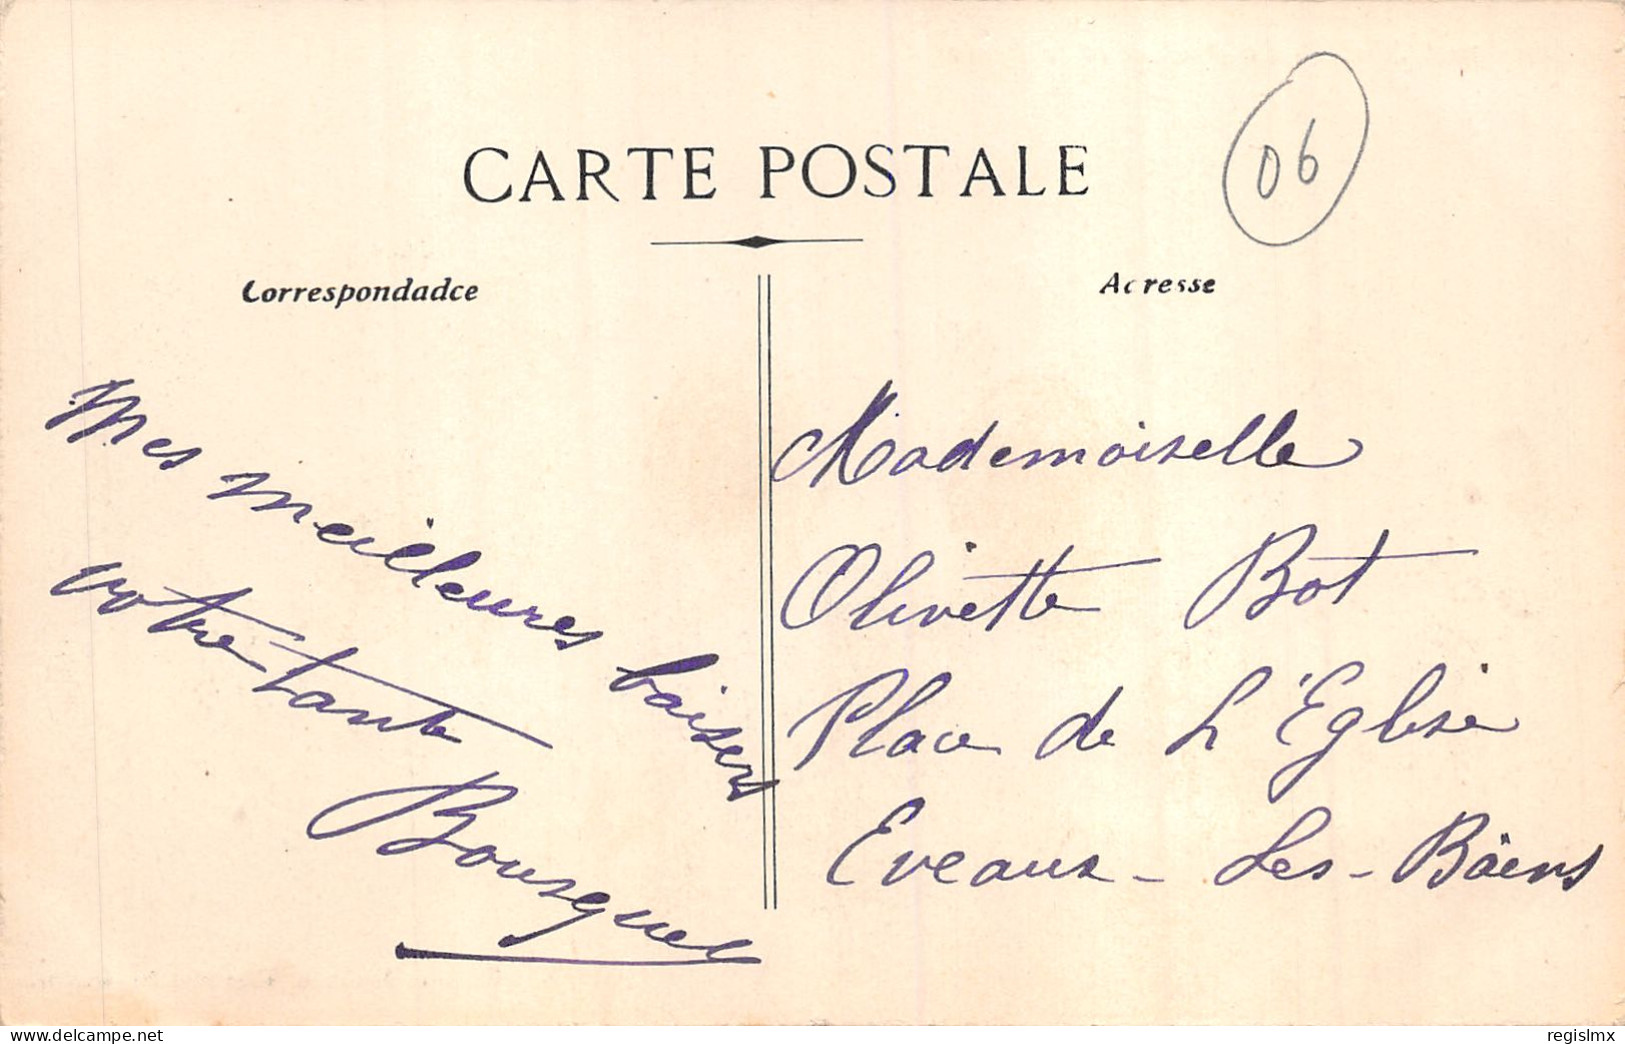 CARTE POSTALE
06
Correspondadce
Acresse
Mes meilleures baisers
votre tante
Bousquet
Mademoiselle
Olivette Bot
Place de L'Eglise
Eveaux - Les - Bäens
www.delcampe.net
regislmx